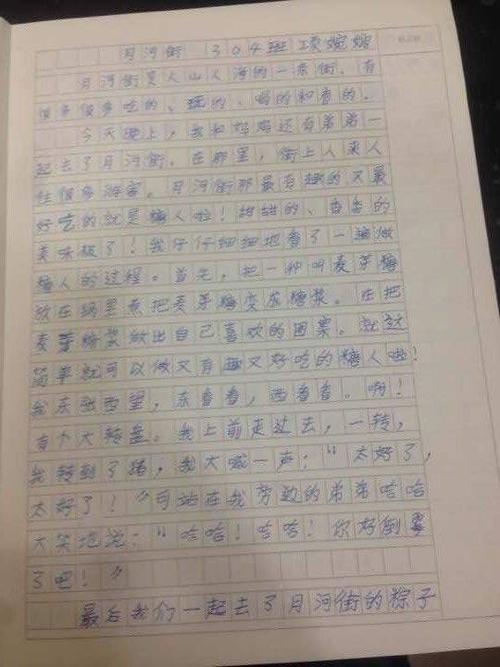 月河街 304班 项婉嫦
月河街是人山人海的一条街，有
很多很多吃的、玩的、喝的和看的。
今天晚上，我和妈妈还有弟弟一
起去了月河街。在那里，街上人来人
往很多游客。月河街那最有趣的又最
好吃的就是糖人啦！甜甜的、香香的
美味极了！我仔仔细细地看了一遍做
糖人的过程。首先，把一种叫麦芽糖
放在锅里煮把麦芽糖变成糖浆。在把
麦芽糖浆做出自己喜欢的图案。就这
简单就可以做又有趣又好吃的糖人啦！
我东张西望，东看看，西看看。啊！
有个大转盘。我上前走过去，一转，
我转到了猪，我大喊一声：“太好了，
太好了！”可站在我旁边的弟弟哈哈
大笑地说：“哈哈！哈哈！你好倒霉
了吧！”
最后我们一起去了月河街的粽子